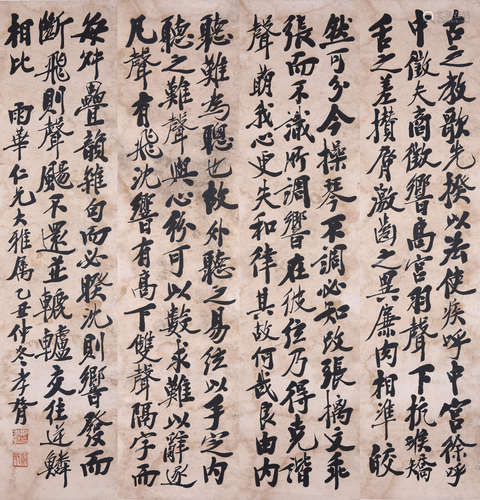 古之教歌先揆以法使疾呼中宮徐呼
中徵夫商徵響高宮羽聲下抗喉矯
舌之差攢脣激齒之異廉肉相準皎
然可分今操琴不調必知改張摛文乖
張而不識所調響在彼絃乃得克諧
聲萌我心更失和律其故何哉良由内
聽難為聰也故外聽之易絃以手定内
聽之難聲與心紛可以數求難以辭逐
凡聲有飛沈響有高下雙聲隔字而
每舛疊韻雜句而必睽沈則響發而
斷飛則聲颺不還並轆轤交往逆鱗
相比 雨華仁兄大雅屬 乙丑仲冬孝胥